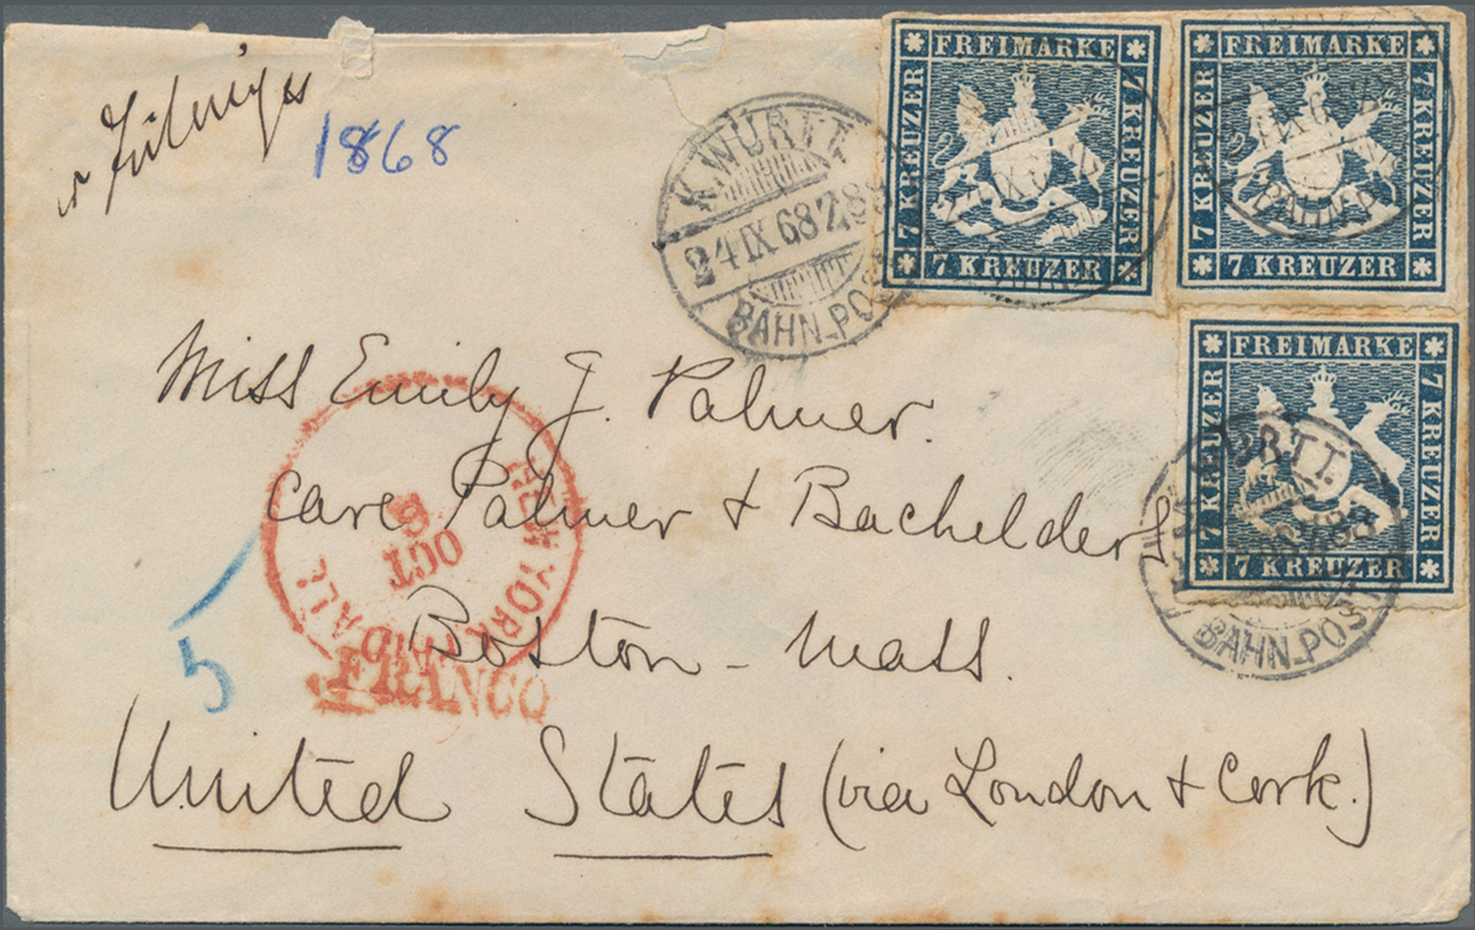 1868
K. WÜRTT.
24 IX 68 Z 83
BAHN-POST
FREIMARKE
7 KREUZER
7 KREUZER
7 KREUZER
FREIMARKE
7 KREUZER
7 KREUZER
7 KREUZER
BAHN-P
FREIMARKE
7 KREUZER
7 KREUZER
7 KREUZER
WÜRTT.
BAHN-POST
Miss Emily J. Palmer.
Care Palmer & Bachelders
Boston - Mass.
United States (via London & Cork.)
NEW YORK
OCT
FRANCO
5